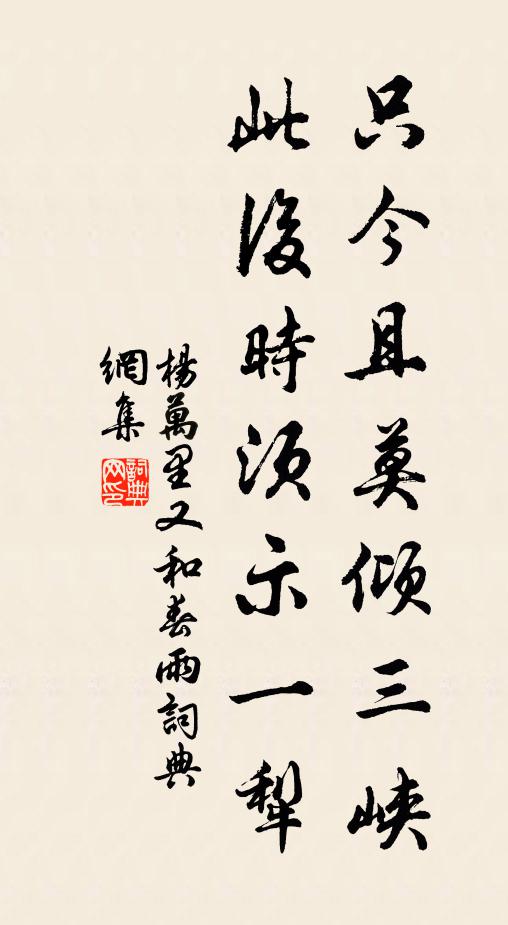 只今且莫傾三峽
此後時須示一犁
楊萬里又和春雨詞典
網集
詞典
網印